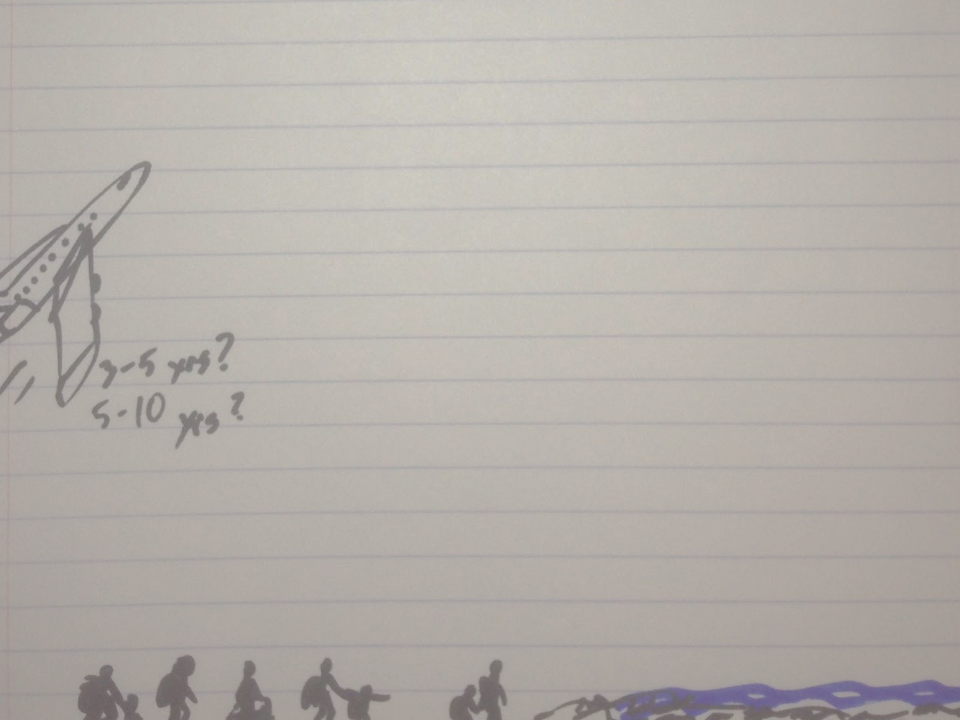 3-5 yrs?
5-10 yrs?